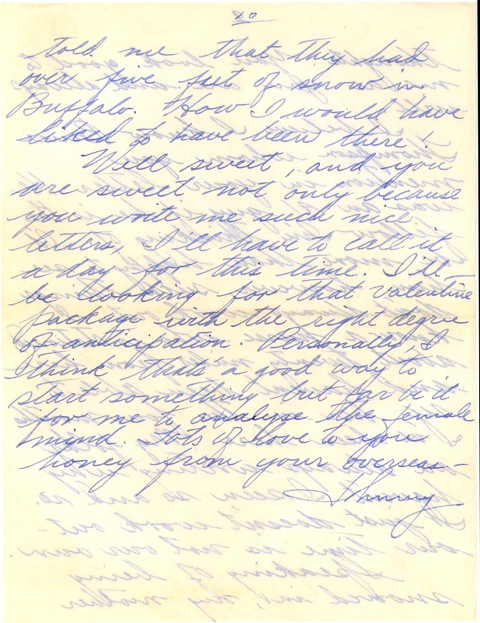 10
told me that they had
over five feet of snow in
Buffalo. How I would have
liked to have been there!
Well sweet, and you
are sweet not only because
you write me such nice
letters, I'll have to call it
a day for this time. I'll
be looking for that valentine
package with the right degree
of anticipation. Personally I
think thats a good way to
start something but far be it
for me to analyse the female
mind. Lots of love to you
honey from your overseas-
Johnny